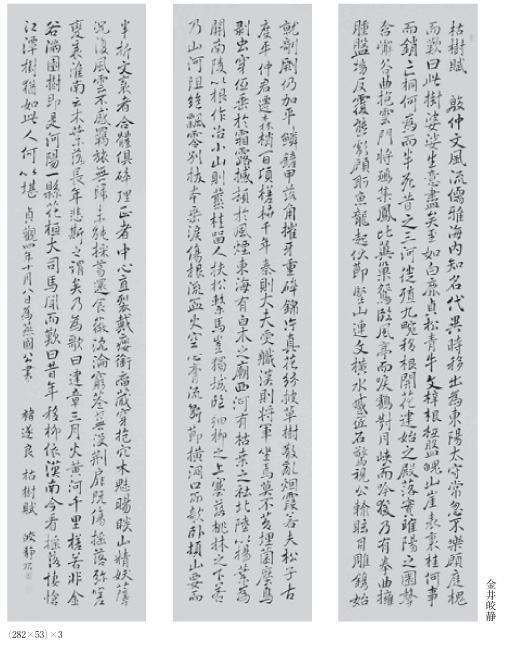 枯樹賦 殷仲文風流儒雅海内知名代異時移出為東陽太守常忽不樂顧庭槐
而歎曰此樹婆娑生意盡矣至如白鹿貞松青牛文梓根柢盤魄山崖表裏桂何事
而銷亡桐何為而半死昔之三河徙殖九畹移根開花建始之殿落實睢陽之園聲
含嶰谷曲抱雲門將鶵集鳳比翼巢鴛臨風亭而唳鶴對月峽而吟猨乃有拳曲擁
腫盤坳反覆熊彪顧盼魚龍起伏節豎山連文橫水蹙匠石驚視公輸眩目雕鐫始
就剞劂仍加平鱗鏟甲落角摧牙重碎錦片真花紛披草樹散亂烟霞若夫松子古
度平仲君遷森梢百頃槎枿千年秦則大夫受職漢則將軍坐焉莫不苔埋菌壓鳥
剝虫穿低垂於霜露撼頓於風煙東海有白木之廟西河有枯桒之社北陸以楊葉為
關南陵以根作冶小山則叢桂留人扶松繫馬豈獨城臨細柳之上塞落桃林之下若
乃山河阻絶飄零別拔本垂淚傷根流血火空心膏流斷節橫洞口而欹卧頓山要而
半折文袤者合體俱碎理正者中心直裂戴癭銜瘤藏穿抱穴木魅睗睒山精妖孽
況復風雲不感羈旅無歸未能採葛還食薇沉淪窮巷蕪沒荊扉既傷搖落弥嗟
變衰淮南云木葉落長年悲斯之謂矣乃為歌曰建章三月火黄河千里槎若非金
谷滿園樹即是河陽一縣花桓大司馬聞而歎曰昔年移柳依漢南今看搖落悽愴
江潭樹猶如此人何以堪 貞觀四年十月八日為燕國公書 褚遂良 枯樹賦 皎静臨
金井皎静
(282×53)×3